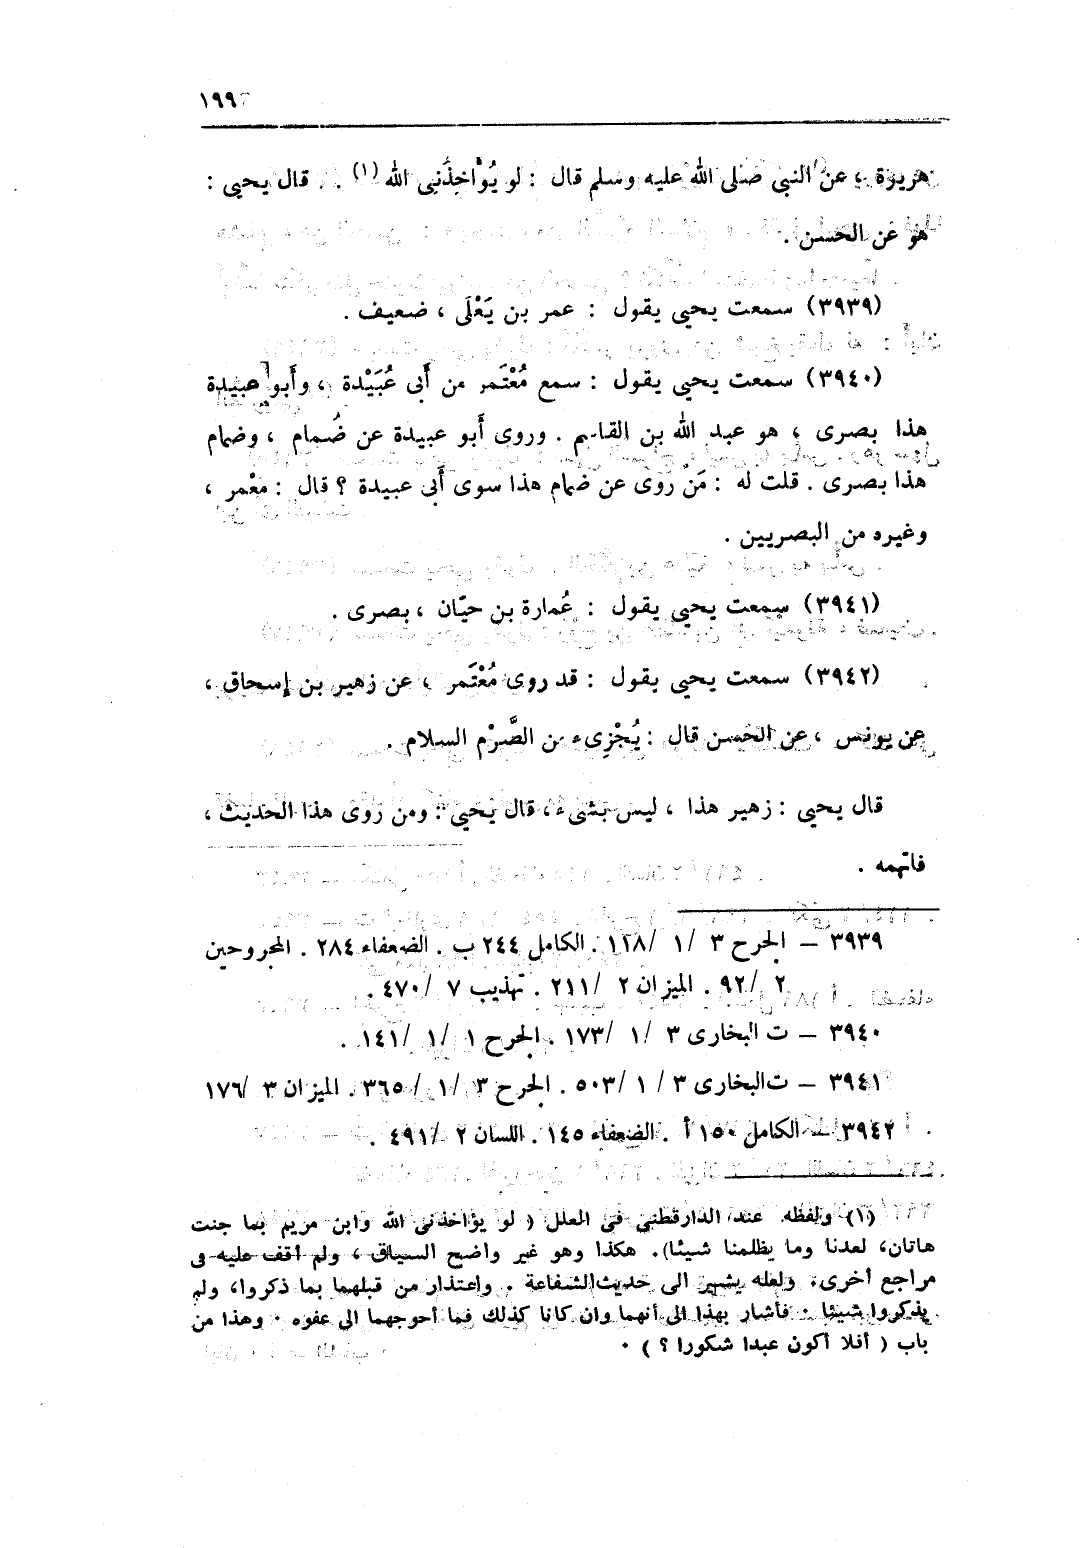 ١٩٩
هريرة ، عن النبي صلى الله عليه وسلم قال : لو يُؤْاخِذُنِى الله (١) . قال يحيى :
هو عن الحسن .
(٣٩٣٩) سمعت يحيى يقول : عمر بن يَعْلَى ، ضعيف .
(٣٩٤٠) سمعت يحيى يقول : سمع مُعْتَمر من أَبى عُبَيْدة ، وأَبو عبيدة
هذا بصرى ، هو عبد الله بن القاسم . وروى أَبو عبيدة عن ضُمام ، وضمام
هذا بصرى . قلت له : مَن روى عن ضمام هذا سوى أَبى عبيدة ؟ قال : معْمر ،
وغيره من البصريين .
(٣٩٤١) سمعت يحيى يقول : عُمارة بن حيّان ، بصرى .
(٣٩٤٢) سمعت يحيى يقول : قد روى مُعْتَمر ، عن زهير بن إسحاق ،
عن يونس ، عن الحسن قال : يُجْزِىء من الصَّرْم السلام .
قال يحيى : زهير هذا ، ليس بشىء ، قال يحيى : ومن روى هذا الحديث ،
فاتهمه .
٣٩٣٩ – الجرح ٣ /١ /١٢٨ . الكامل ٢٤٤ ب . الضعفاء ٢٨٤ . المجروحين
٢ /٩٢ . الميزان ٢ /٢١١ . تهذيب ٧ /٤٧٠ .
٣٩٤٠ – ت البخارى ٣ /١ /١٧٣ . الجرح ١ /١ /١٤١ .
٣٩٤١ – ت البخارى ٣ /١ /٥٠٣ . الجرح ٣ /١ /٣٦٥ . الميزان ٣ /١٧٦
٣٩٤٢ – الكامل ١٥٠ أ . الضعفاء ١٤٥ . اللسان ٢ /٤٩١ .
(١) ولفظه عند الدارقطنى فى العلل ( لو يؤاخذنى الله وابن مريم بما جنت
هاتان، لعدنا وما يظلمنا شيئا). هكذا وهو غير واضح السياق ، ولم أقف عليه فى
مراجع أخرى، ولعله يشير الى حديث الشفاعة . واعتذار من قبلهما بما ذكروا، ولم
يذكروا شيئا . فأشار بهذا الى أنهما وان كانا كذلك فما أحوجهما الى عفوه . وهذا من
باب ( أفلا أكون عبدا شكورا ؟ ) .